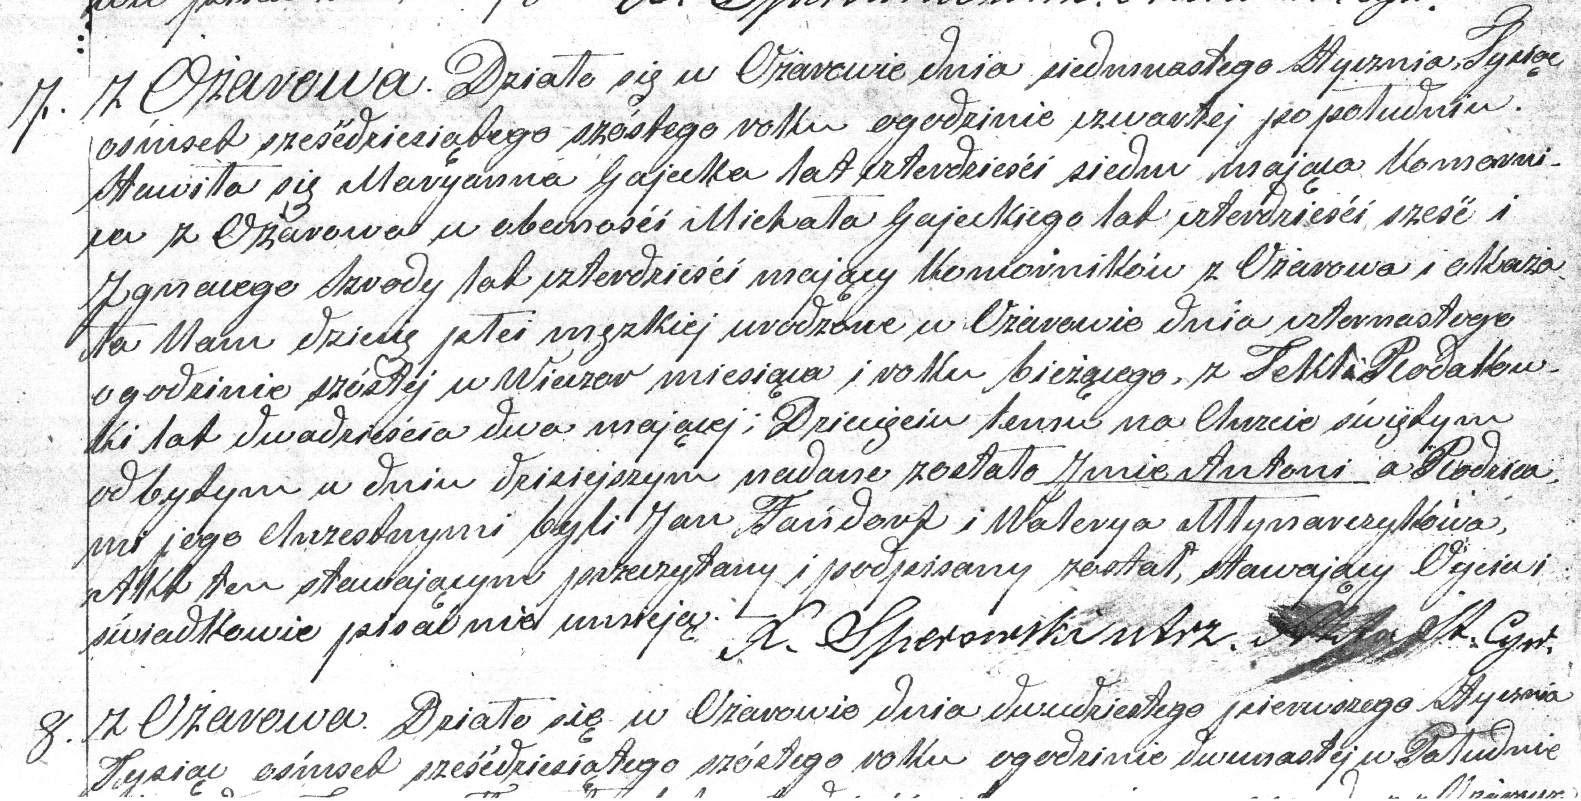 7. z Ożarowa. Działo się w Ożarowie dnia siedmnastego Stycznia, Tysiąc
ośmset sześcdziesiątego szóstego roku ogodzinie czwartej popołudniu.
Stawiła się Maryanna Gajecka lat czterdzieści siedm mająca Komorni-
ca z Ożarowa w obecności Michała Gajeckiego lat cztérdzieści sześć i
Ignacego Szrody lat czterdzieści mający Komorników z Ożarowa i okaza
ła Nam dziecię płci męzkiej urodzone w Ożarowie dnia czternastego
ogodzinie szóstej w Wieczor miesiąca i roku bieżącego, z Tekli Rodaków-
ki lat dwadzieścia dwa mającej; Dziecięciu temu na Chrzcie świętym
odbytym w dniu dzisiejszym nadane zostało Jmie Antoni a Rodzica
mi jego Chrzestnymi byli Jan Fańdorf i Waleryа Młynarczykówa,
Akt ten stawającym przeczytany i podpisany został, stawający Ojciec i
świadkowie pisać nie umieją.
X. Sperowski utrz. Akta St. Cyw.
8. z Ożarowa. Działo się w Ożarowie dnia dwudziestego pierwszego Stycznia
Tysiąc ośmset sześcdziesiątego szóstego roku ogodzinie dwunastej w Południe